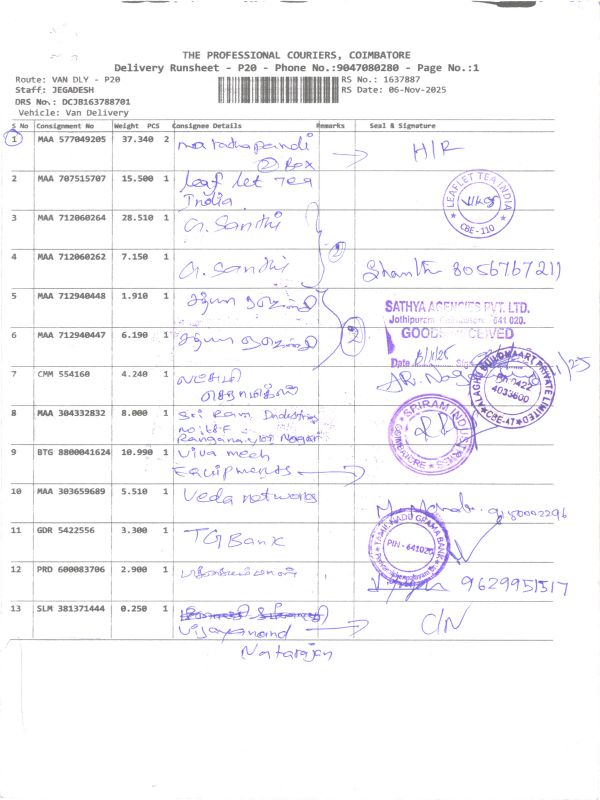 THE PROFESSIONAL COURIERS, COIMBATORE
Delivery Runsheet - P20 - Phone No.:9047080280 - Page No.:1
Route: VAN DLY - P20
Staff: JEGADESH
DRS No.: DCJB163788701
Vehicle: Van Delivery
RS No.: 1637887
RS Date: 06-Nov-2025
S No Consignment No Weight PCS Consignee Details Remarks Seal & Signature
1 MAA 577049205 37.340 2 H/R
② Box
2 MAA 707515707 15.500 1 Leaf let Tea
India
LEAFLET TEA INDIA
CBE-110
3 MAA 712060264 28.510 1 G. Santhi
4 MAA 712060262 7.150 1 G. Santhi ② Shanthi 8056767211
5 MAA 712940448 1.910 1 சத்யா
SATHYA AGENCIES PVT. LTD.
Jothipuram, Coimbatore - 641 020.
GOODS RECEIVED
Date
6 MAA 712940447 6.190 1 சத்யா ②
7 CMM 554160 4.240 1 லட்சுமி
ALAGHU BUILDMAART PRIVATE LIMITED
PH:0422
4033600
CBE-47
8 MAA 304332832 8.000 1 Sri Ram Industries
Ranganayagi Nagar
SRIRAM INDUSTRIES
COIMBATORE
9 BTG 8800041624 10.990 1 Viva mech
Equipments
10 MAA 303659689 5.510 1 Veda networks 9150002296
11 GDR 5422556 3.300 1 TG Bank
TAMIL NADU GRAMA BANK
PIN - 641020
12 PRD 600083706 2.900 1 9629951517
13 SLM 381371444 0.250 1 C/N
Vijayanand
Natarajan